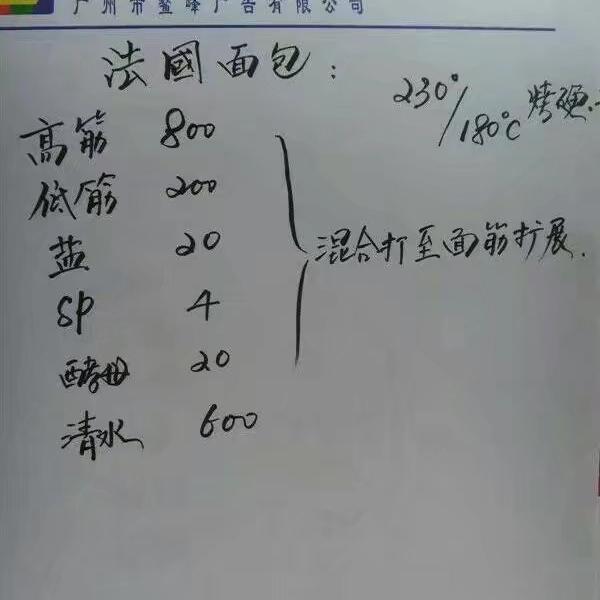 广州市鳌峰广告有限公司
法國面包：
230°/180°C 烤硬.
高筋 800
低筋 200
盐 20
SP 4
酵母 20
清水 600
混合打至面筋扩展.